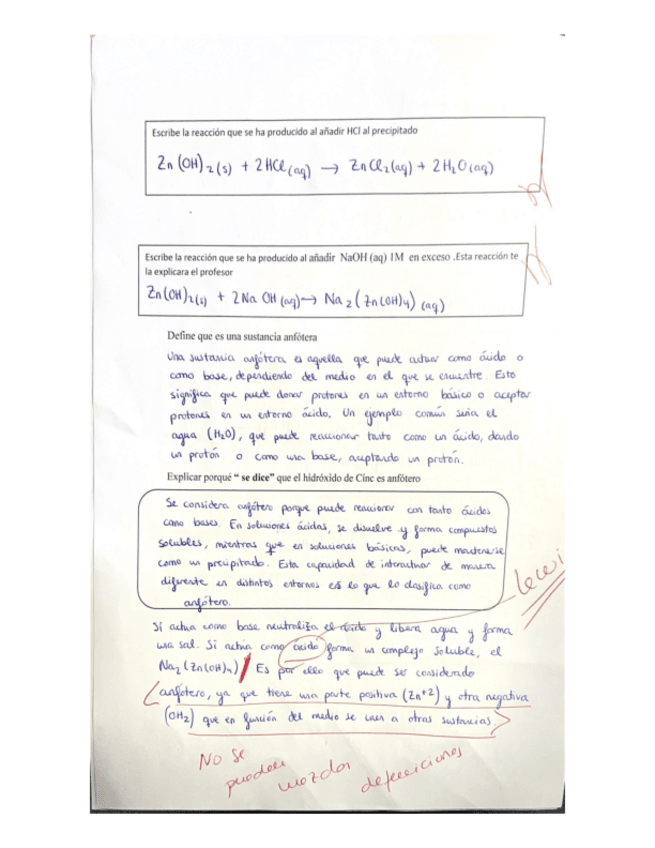 Escribe la reacción que se ha producido al añadir HCl al precipitado
Zn(OH)₂(s) + 2HCl(aq) → ZnCl₂(aq) + 2H₂O(aq)
Escribe la reacción que se ha producido al añadir NaOH (aq) 1M en exceso .Esta reacción te
la explicara el profesor
Zn(OH)₂(s) + 2NaOH(aq) → Na₂(Zn(OH)₄)(aq)
Define que es una sustancia anfótera
Una sustancia anfótera es aquella que puede actuar como ácido o
como base, dependiendo del medio en el que se encuentre. Esto
significa que puede donar protones en un entorno básico o aceptar
protones en un entorno ácido. Un ejemplo común seria el
agua (H₂O), que puede reaccionar tanto como un ácido, dando
un protón o como una base, aceptando un protón.
Explicar porqué “ se dice” que el hidróxido de Cinc es anfótero
Se considera anfótero porque puede reaccionar con tanto ácidos
como bases. En soluciones ácidas, se disuelve y forma compuestos
solubles, mientras que en soluciones básicas, puede mantenerse
como un precipitado. Esta capacidad de interactuar de manera
diferente en distintos entornos es lo que lo clasifica como
anfótero.
Si actua como base neutraliza el ácido y libera agua y forma
una sal. Si actua como ácido forma un complejo soluble, el
Na₂(Zn(OH)₄) Es por ello que puede ser considerado
anfótero, ya que tiene una parte positiva (Zn⁺²) y otra negativa
(OH₂) que en función del medio se unen a otras sustancias.
No se
pueden
mezclar
definiciones